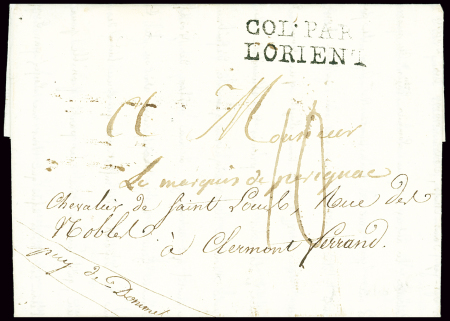 COL. PAR
LORIENT
A Monsieur
Le marquis de
Chevalier de Saint Louis, Rue des
Nobles.
10
à Clermont ferrand.
puy de Domme